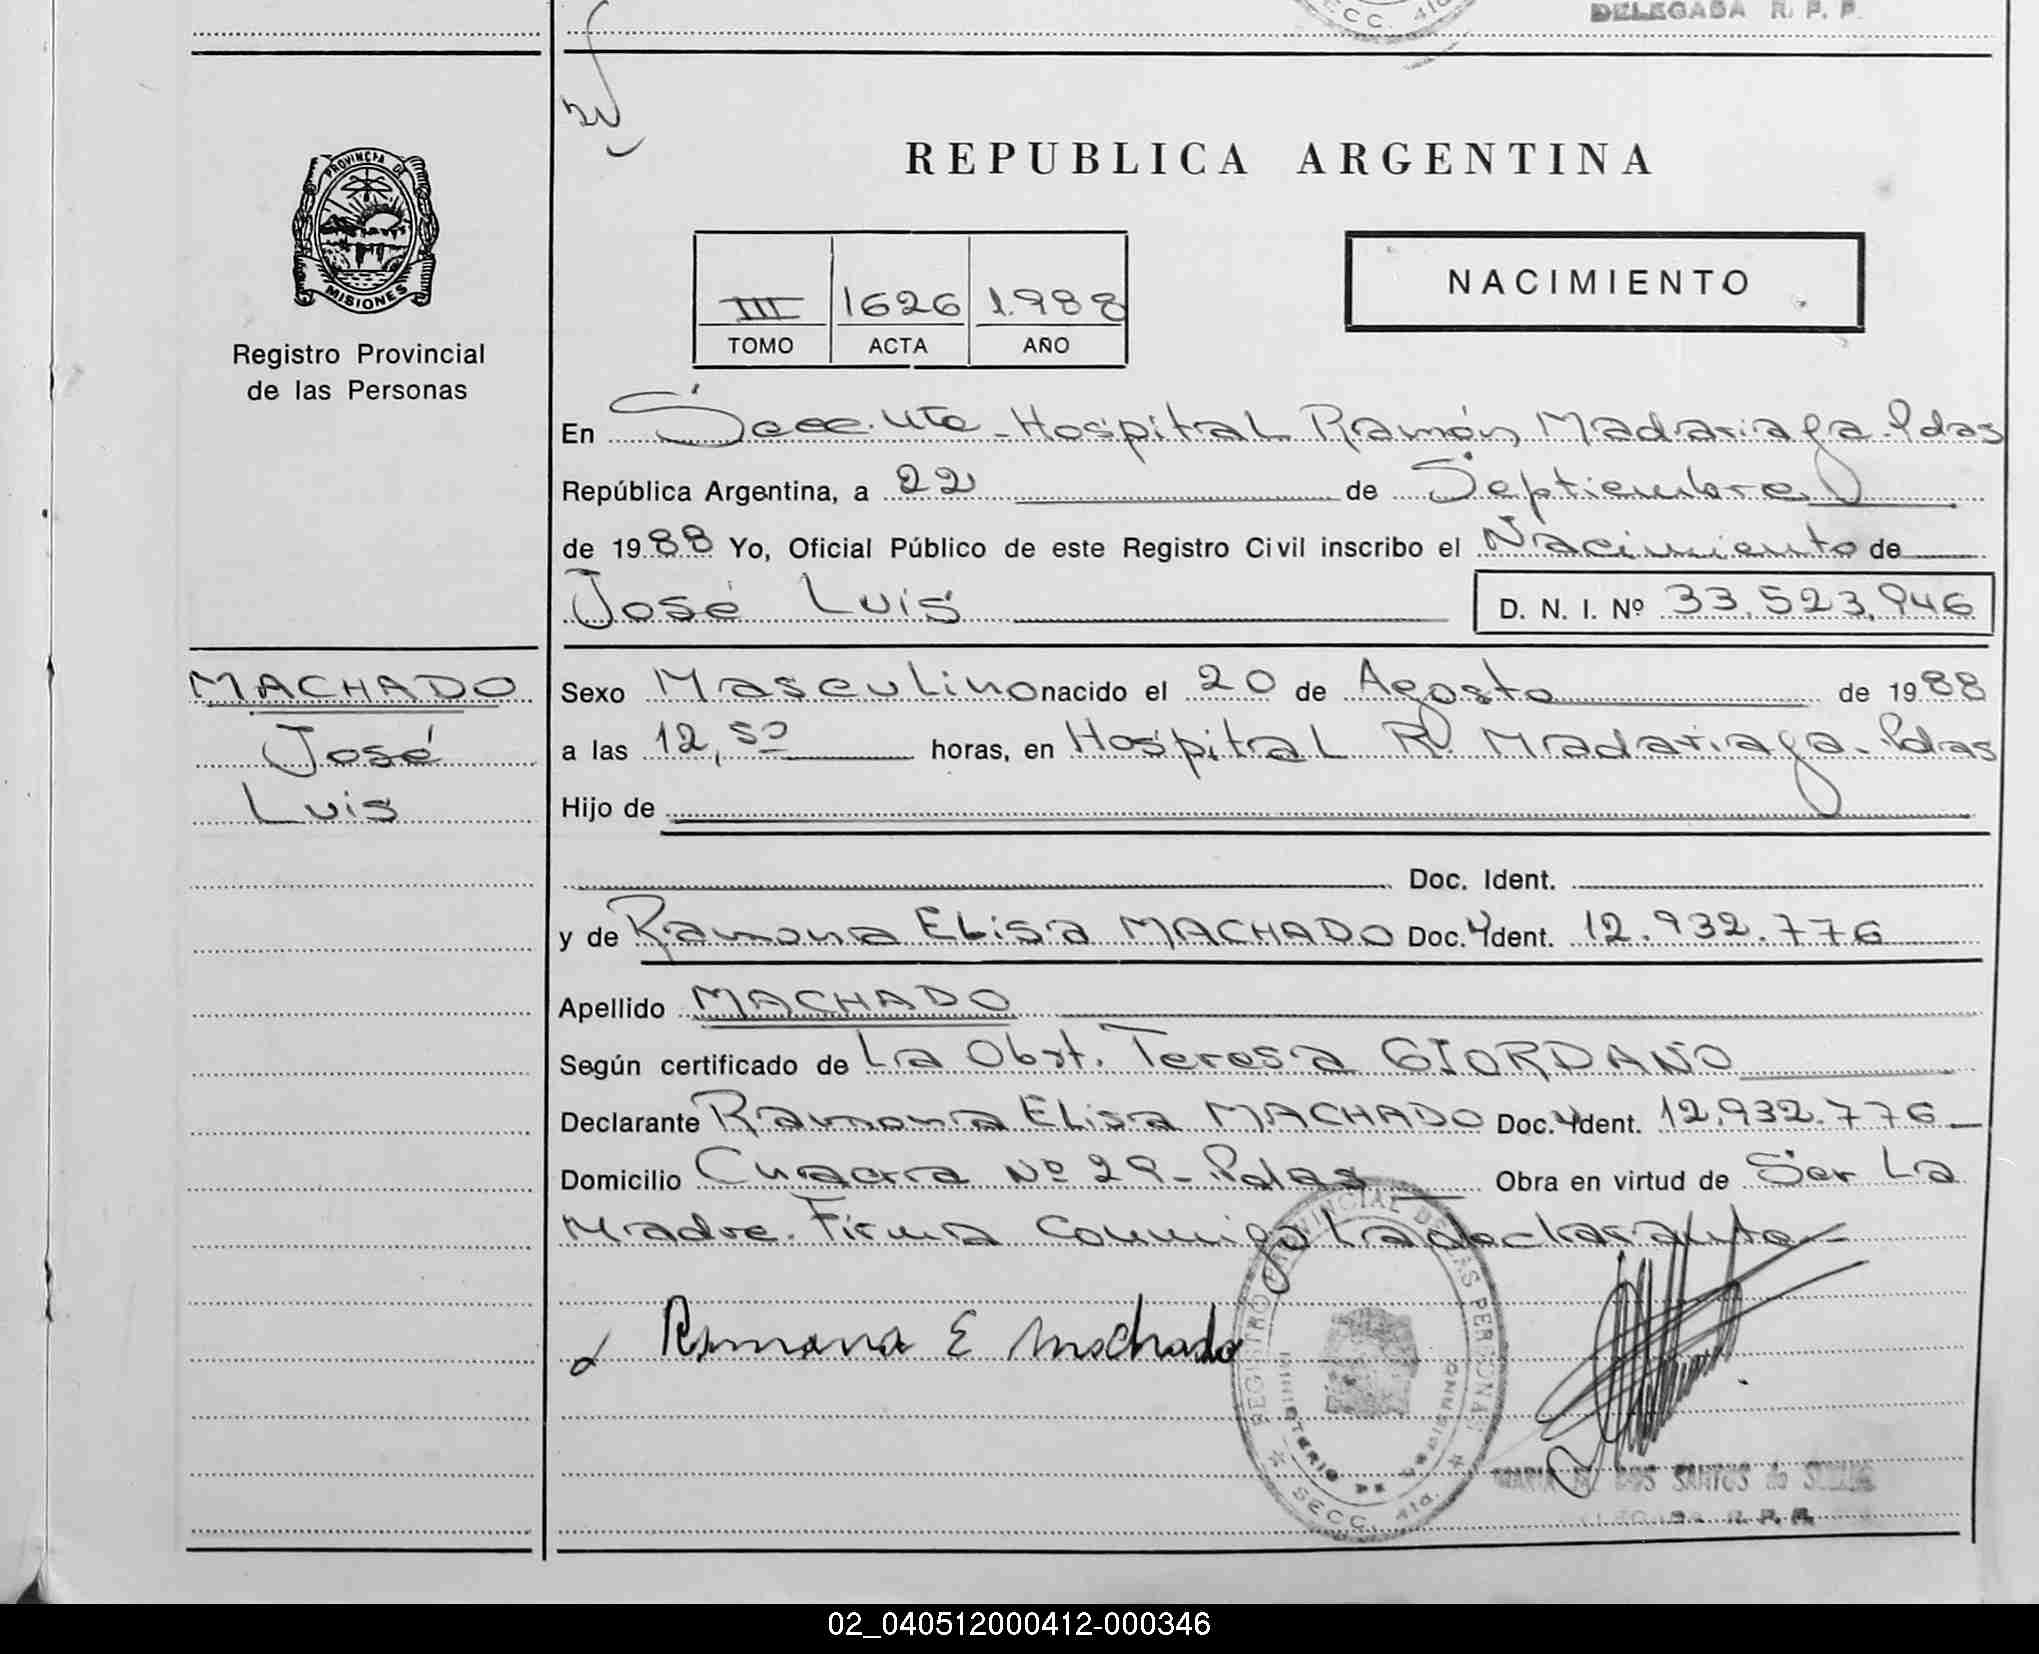 SECC. 4ta.
DELEGADA R. P. P.
PROVINCIA DE
MISIONES
Registro Provincial
de las Personas
REPUBLICA ARGENTINA
III 1626 1.988
TOMO ACTA AÑO
NACIMIENTO
En Secc. 4ta - Hospital Ramón Madariaga - Pdas
República Argentina, a 22 de Septiembre
de 1988 Yo, Oficial Público de este Registro Civil inscribo el Nacimiento de
José Luis D. N. I. Nº 33.523.946
MACHADO
José
Luis
Sexo Masculino nacido el 20 de Agosto de 1988
a las 12,50 horas, en Hospital R. Madariaga - Pdas
Hijo de
Doc. Ident.
y de Ramona Elisa MACHADO Doc. Ident. 12.932.776
Apellido MACHADO
Según certificado de La Obst. Teresa GIORDANO
Declarante Ramona Elisa MACHADO Doc. Ident. 12.932.776
Domicilio Chacra Nº 29 - Pdas Obra en virtud de Ser La
Madre. Firma conmigo La declarante
Ramona E Machado
REGISTRO PROVINCIAL DE LAS PERSONAS
MINISTERIO DE GOBIERNO
SECC. 4ta.
MARIA DOS SANTOS de
DELEGADA R. P. P.
02_040512000412-000346